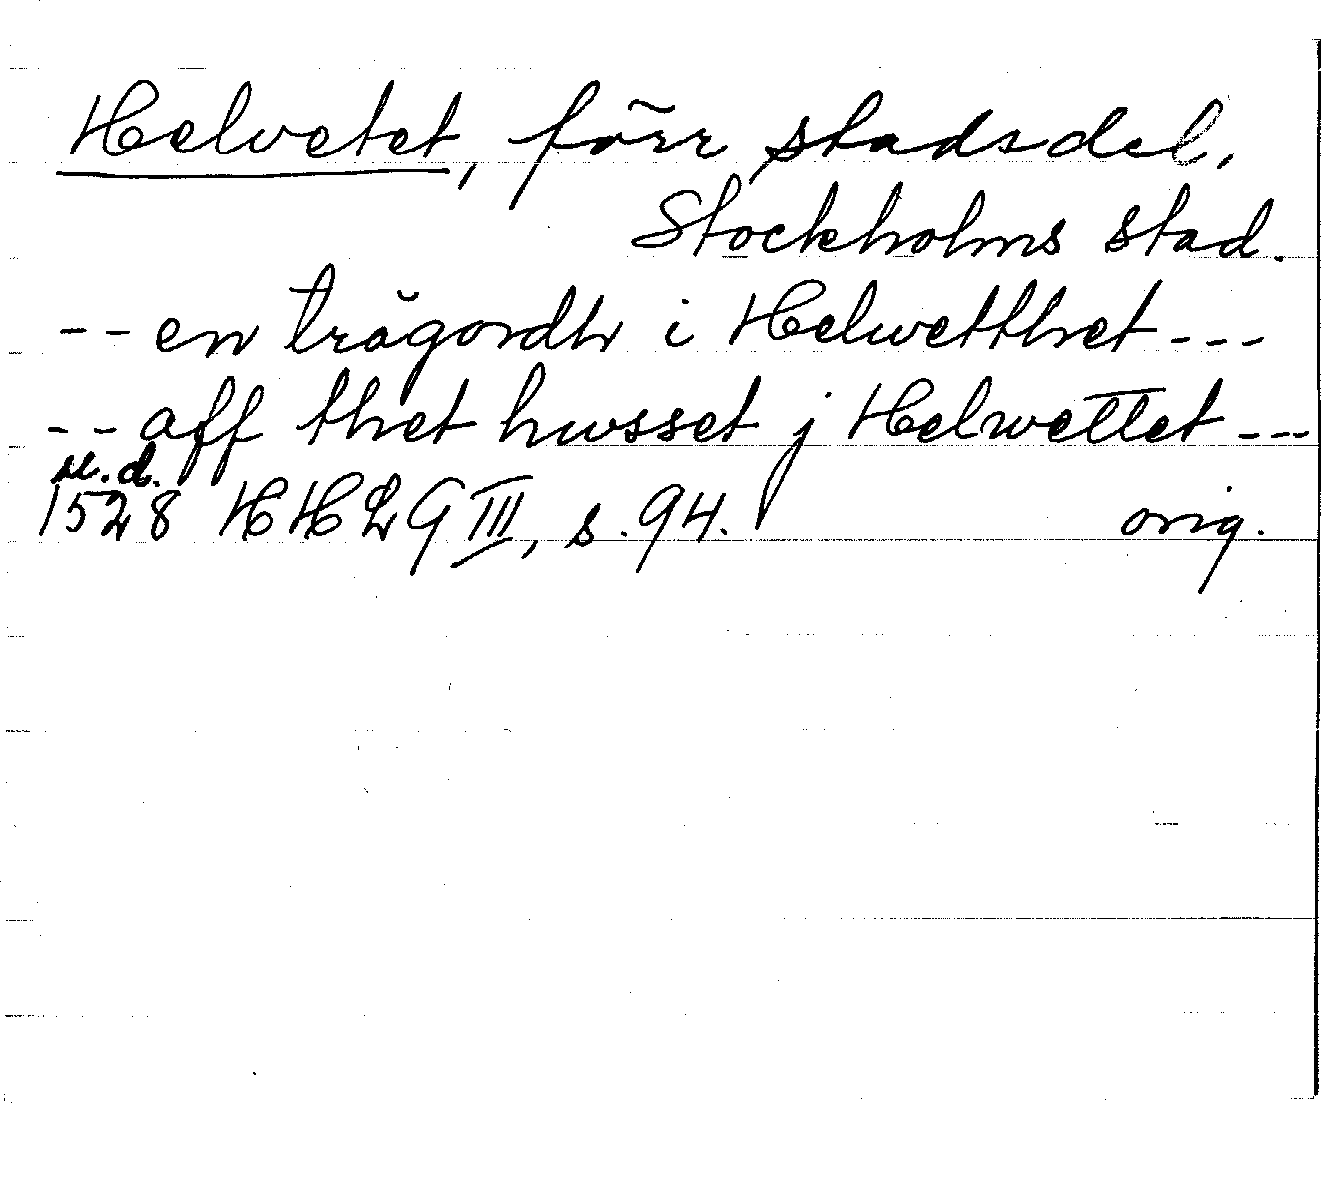 Helvetet, förr stadsdel,
Stockholms stad.
-- en trägordh i Helwetthet ---
-- aff thet hwsset j Helwettet ---
u.d.
1528 HHLG III, s. 94. orig.